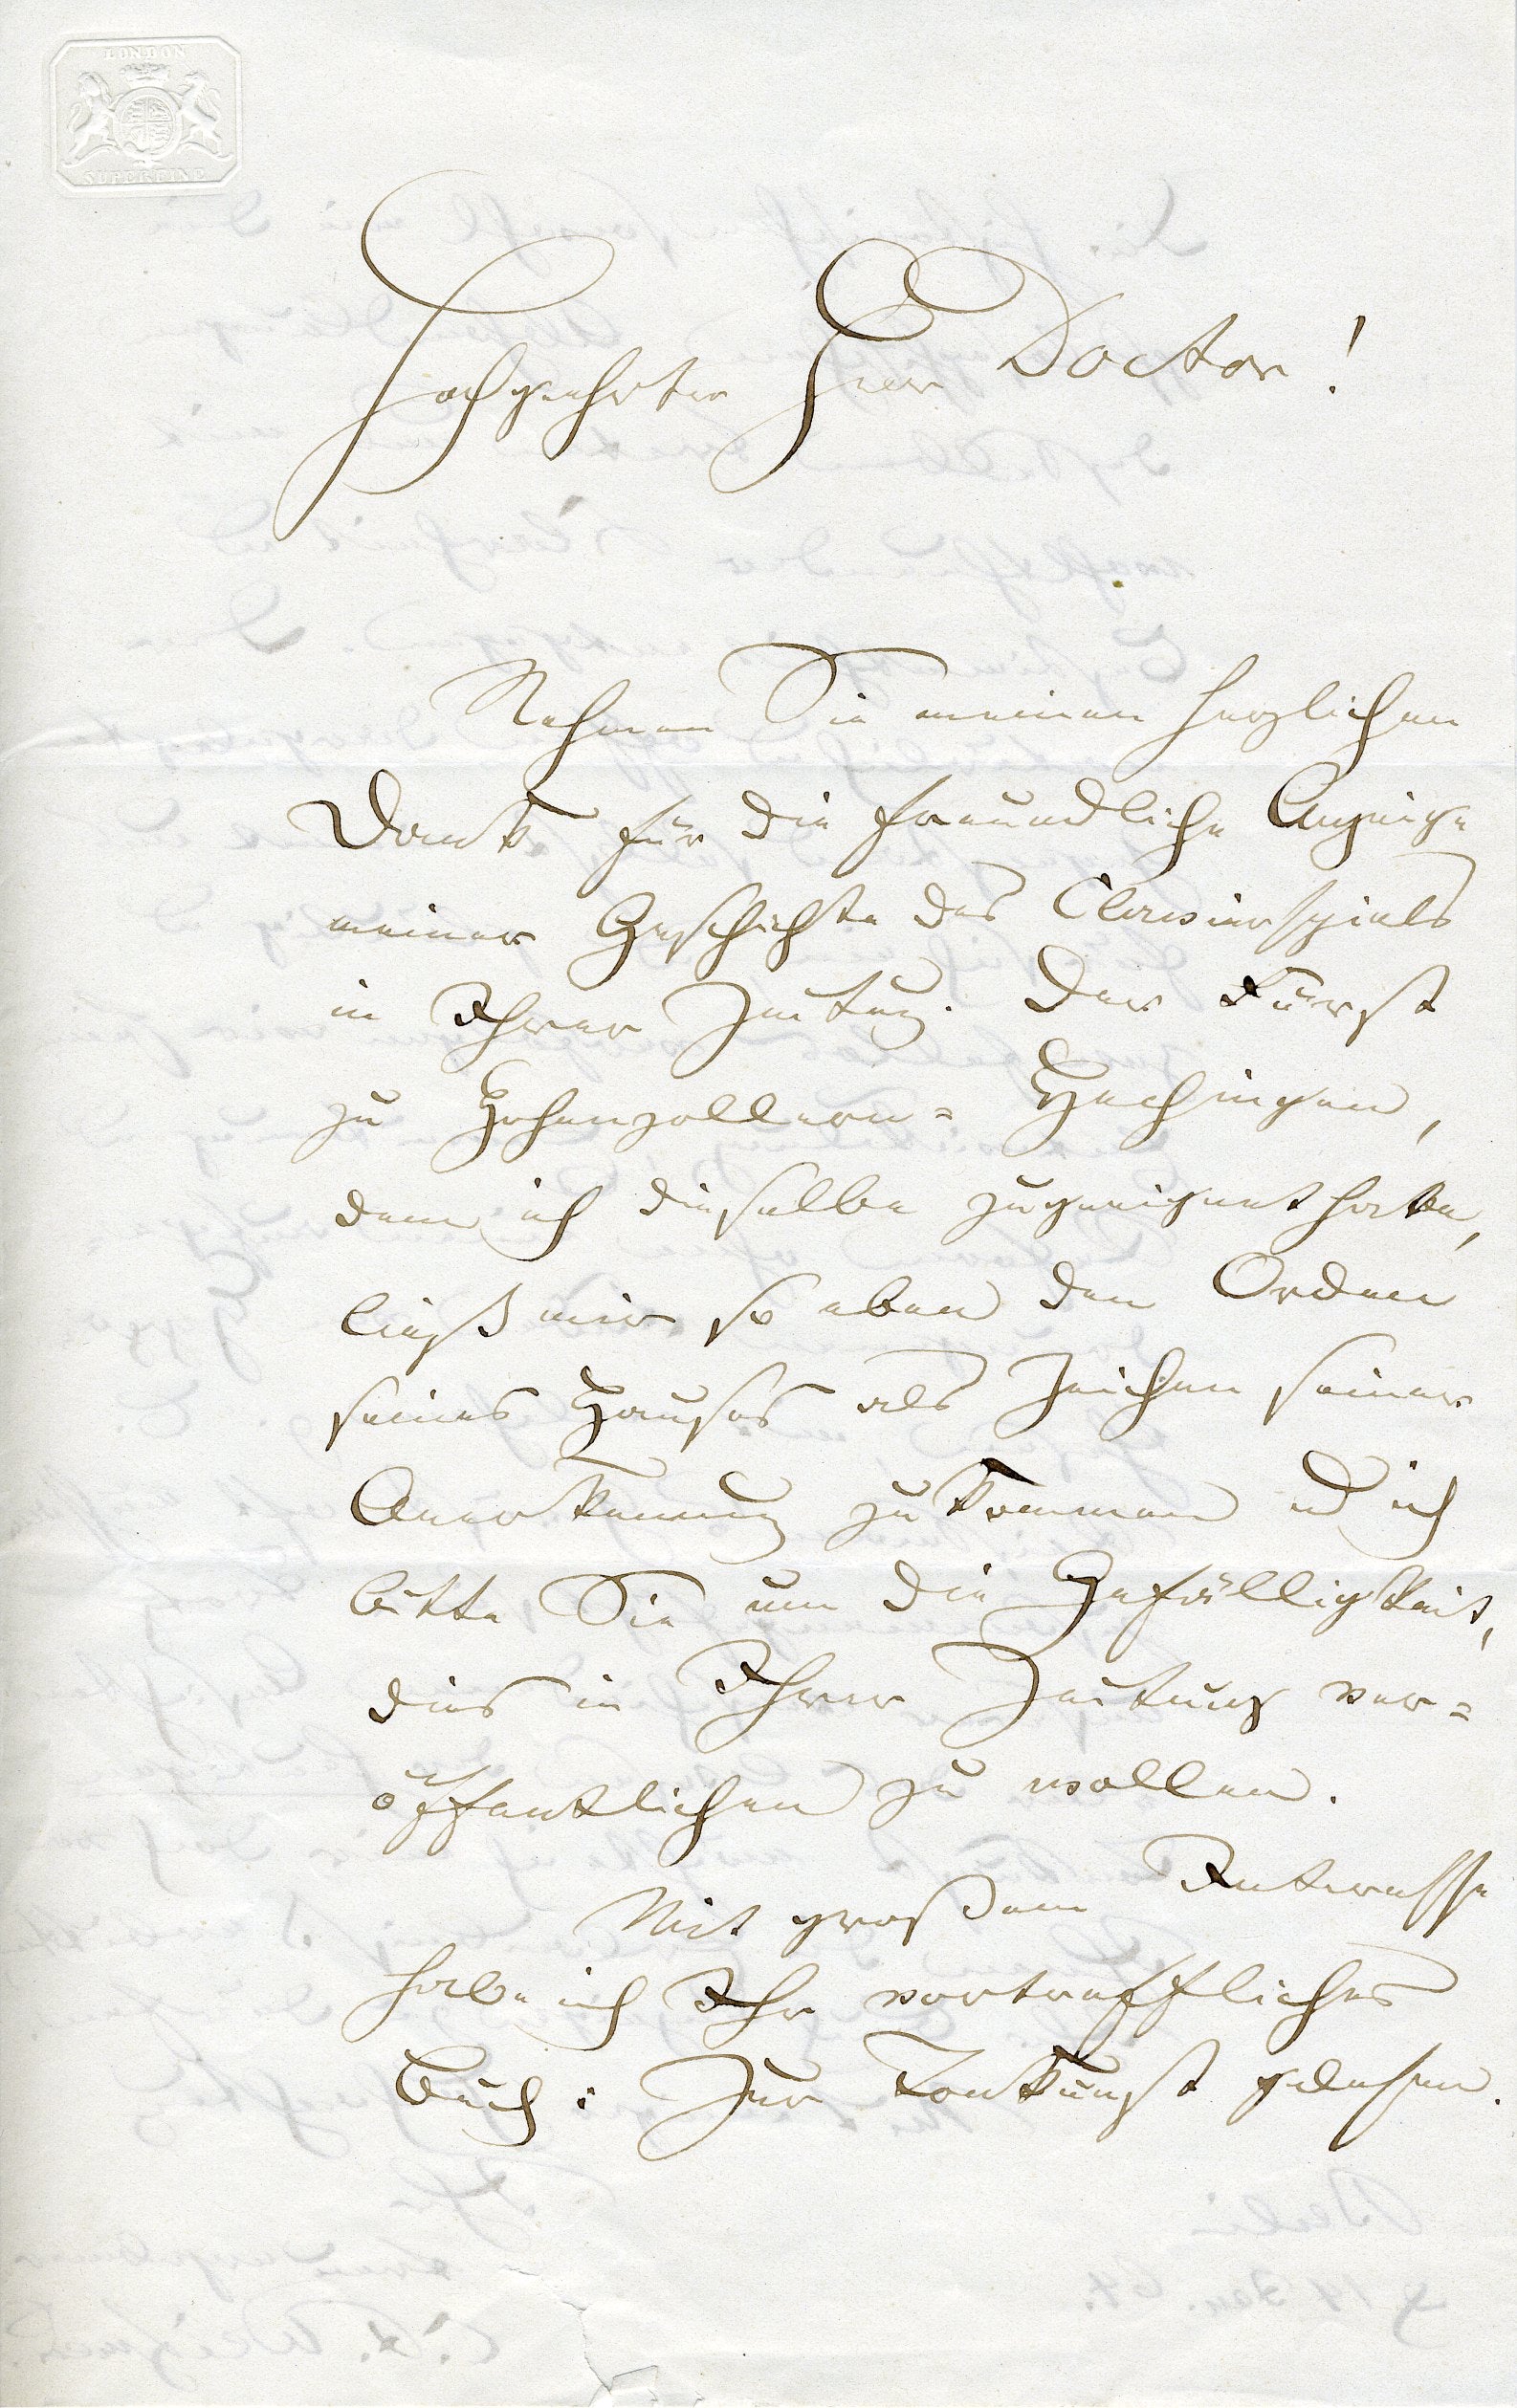 LONDON
SUPERFINE
Hochgeehrter Herr Doctor!
Nehmen Sie meinen herzlichen
Dank für die freundliche Anzeige
meiner Geschichte des Clavierspiels
in Ihrer Zeitung. Der Fürst
zu Hohenzollern=Hechingen,
dem ich dieselbe zugeeignet habe,
ließ mir so eben den Orden
seines Hauses als Zeichen seiner
Anerkennung zukommen und ich
bitte Sie um die Gefälligkeit,
dies in Ihrer Zeitung ver=
öffentlichen zu wollen.
Mit großem Interesse
habe ich Ihr vortreffliches
Buch: Zur Tonkunst gelesen.